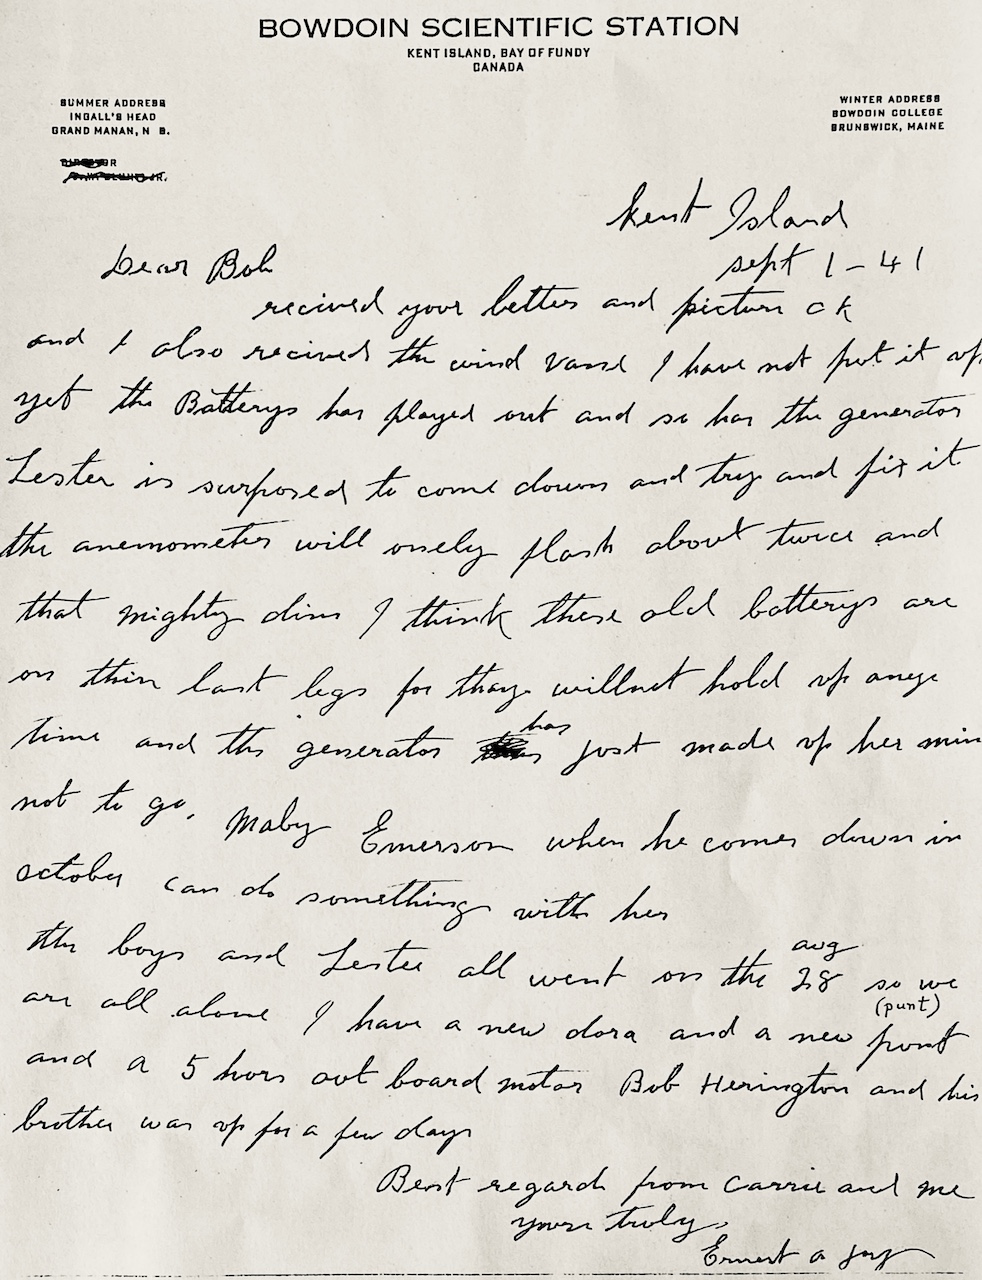 BOWDOIN SCIENTIFIC STATION
KENT ISLAND, BAY OF FUNDY
CANADA
SUMMER ADDRESS
INGALL'S HEAD
GRAND MANAN, N. B.
WINTER ADDRESS
BOWDOIN COLLEGE
BRUNSWICK, MAINE
Kent Island
sept 1 - 41
Dear Bob
recived your letters and picture ok
and I also recived the wind vane I have not put it up
yet the Batterys has played out and so has the generator
Lester is surposed to come down and try and fix it
the anemometer will onely flash about twice and
that mighty dim I think these old batterys are
on thin last legs for thay willnot hold up anye
time and the generator has just made up her min
not to go. Maby Emerson when he comes down in
october can do something with her
the boys and Lester all went on the aug 28 so we
are all alone I have a new dora and a new punt (punt)
and a 5 hors out board motor Bob Herington and his
brother was up for a few days
Best regards from Carrie and me
yours truly,
Ernest a Joy